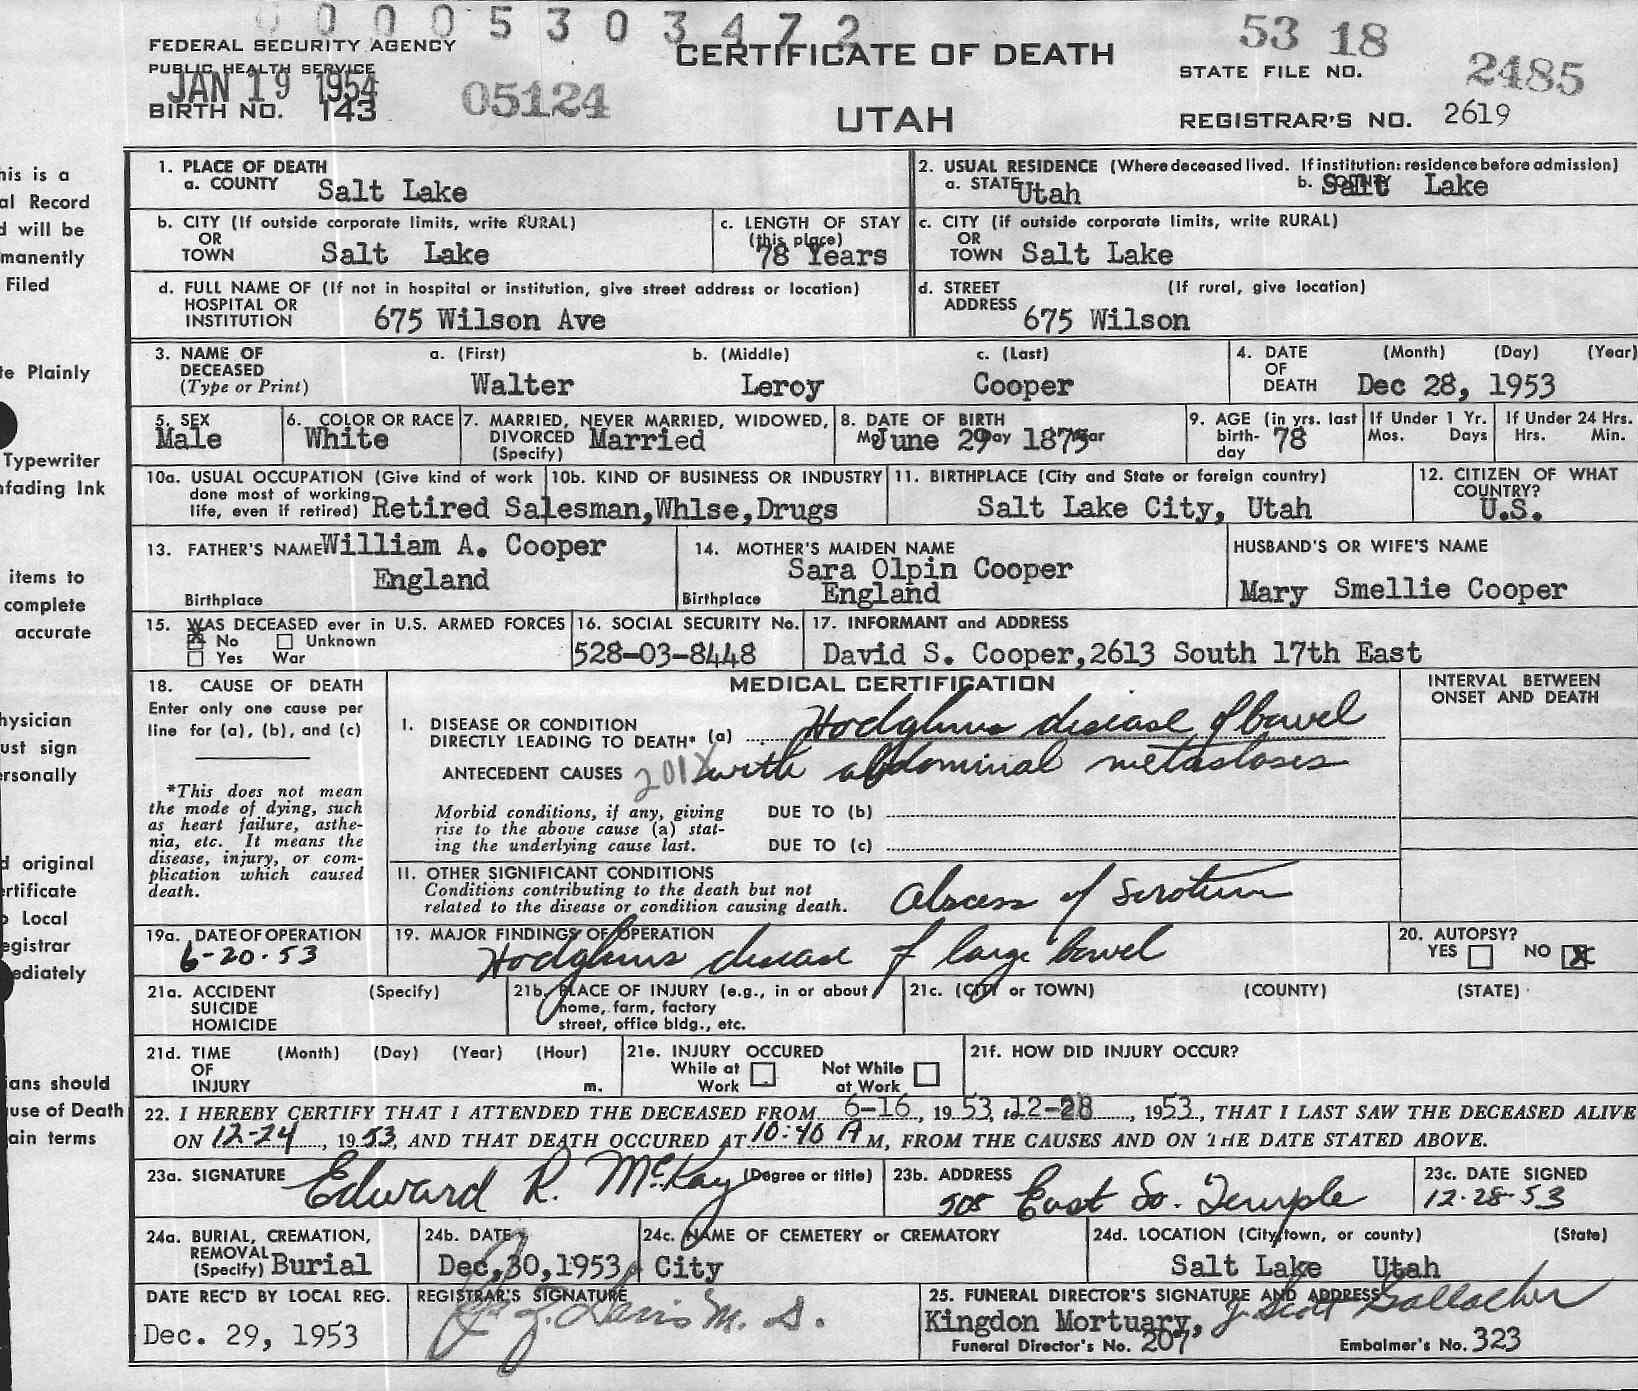 0 0 0 5 3 0 3 4 7 2
FEDERAL SECURITY AGENCY
PUBLIC HEALTH SERVICE
JAN 19 1954
BIRTH NO. 143
05124
CERTIFICATE OF DEATH
UTAH
53 18
STATE FILE NO. 2485
REGISTRAR'S NO. 2619
his is a
al Record
d will be
manently
Filed
te Plainly
Typewriter
nfading Ink
items to
complete
accurate
hysician
ust sign
ersonally
d original
ertificate
o Local
egistrar
ediately
ians should
use of Death
ain terms
1. PLACE OF DEATH
a. COUNTY Salt Lake
2. USUAL RESIDENCE (Where deceased lived. If institution: residence before admission)
a. STATE Utah b. COUNTY Salt Lake
b. CITY (If outside corporate limits, write RURAL)
OR
TOWN Salt Lake
c. LENGTH OF STAY
(this place)
78 Years
c. CITY (if outside corporate limits, write RURAL)
OR
TOWN Salt Lake
d. FULL NAME OF (If not in hospital or institution, give street address or location)
HOSPITAL OR
INSTITUTION 675 Wilson Ave
d. STREET (If rural, give location)
ADDRESS 675 Wilson
3. NAME OF a. (First) b. (Middle) c. (Last)
DECEASED
(Type or Print) Walter Leroy Cooper
4. DATE (Month) (Day) (Year)
OF
DEATH Dec 28, 1953
5. SEX
Male
6. COLOR OR RACE
White
7. MARRIED, NEVER MARRIED, WIDOWED,
DIVORCED Married
(Specify)
8. DATE OF BIRTH
June 29 1875
9. AGE (in yrs. last
birth- 78
day
If Under 1 Yr.
Mos. Days
If Under 24 Hrs.
Hrs. Min.
10a. USUAL OCCUPATION (Give kind of work
done most of working
life, even if retired) Retired Salesman,Whlse,Drugs
10b. KIND OF BUSINESS OR INDUSTRY
11. BIRTHPLACE (City and State or foreign country)
Salt Lake City, Utah
12. CITIZEN OF WHAT
COUNTRY?
U.S.
13. FATHER'S NAME William A. Cooper
England
Birthplace
14. MOTHER'S MAIDEN NAME
Sara Olpin Cooper
Birthplace England
HUSBAND'S OR WIFE'S NAME
Mary Smellie Cooper
15. WAS DECEASED ever in U.S. ARMED FORCES
No Unknown
Yes War
16. SOCIAL SECURITY No.
528-03-8448
17. INFORMANT and ADDRESS
David S. Cooper,2613 South 17th East
18. CAUSE OF DEATH
Enter only one cause per
line for (a), (b), and (c)
*This does not mean
the mode of dying, such
as heart failure, asthe-
nia, etc. It means the
disease, injury, or com-
plication which caused
death.
MEDICAL CERTIFICATION
INTERVAL BETWEEN
ONSET AND DEATH
I. DISEASE OR CONDITION
DIRECTLY LEADING TO DEATH* (a) Hodgkins disease of bowel
ANTECEDENT CAUSES 201X with abdominal metastases
Morbid conditions, if any, giving
rise to the above cause (a) stat-
ing the underlying cause last.
DUE TO (b)
DUE TO (c)
II. OTHER SIGNIFICANT CONDITIONS
Conditions contributing to the death but not
related to the disease or condition causing death.
Abscess of scrotum
19a. DATE OF OPERATION
6-20-53
19. MAJOR FINDINGS OF OPERATION
Hodgkins disease of large bowel
20. AUTOPSY?
YES NO X
21a. ACCIDENT (Specify)
SUICIDE
HOMICIDE
21b. PLACE OF INJURY (e.g., in or about
home, farm, factory
street, office bldg., etc.
21c. (CITY or TOWN) (COUNTY) (STATE)
21d. TIME (Month) (Day) (Year) (Hour)
OF
INJURY m.
21e. INJURY OCCURED
While at Not While
Work at Work
21f. HOW DID INJURY OCCUR?
22. I HEREBY CERTIFY THAT I ATTENDED THE DECEASED FROM 6-16, 1953, to 12-28, 1953, THAT I LAST SAW THE DECEASED ALIVE
ON 12-24, 1953, AND THAT DEATH OCCURED AT 10:40 A M, FROM THE CAUSES AND ON THE DATE STATED ABOVE.
23a. SIGNATURE Edward R. McKay (Degree or title)
23b. ADDRESS
508 East So. Temple
23c. DATE SIGNED
12-28-53
24a. BURIAL, CREMATION,
REMOVAL
(Specify) Burial
24b. DATE
Dec,30,1953
24c. NAME OF CEMETERY or CREMATORY
City
24d. LOCATION (City, town, or county) (State)
Salt Lake Utah
DATE REC'D BY LOCAL REG.
Dec. 29, 1953
REGISTRAR'S SIGNATURE
Davis M. D.
25. FUNERAL DIRECTOR'S SIGNATURE AND ADDRESS
Kingdon Mortuary, J. Scott Gallacher
Funeral Director's No. 207 Embalmer's No. 323